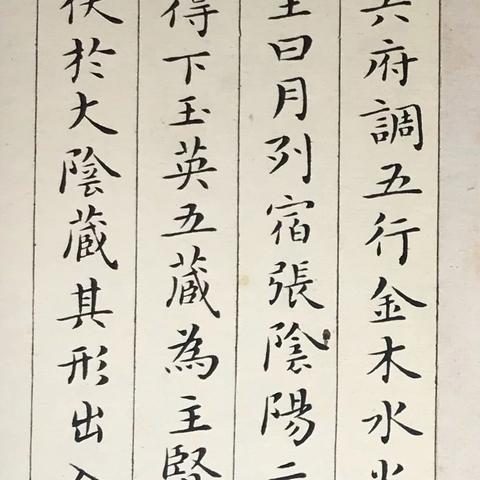 六府調五行金木水火
主日月列宿張陰陽二
得下玉英五藏為主腎
伏於大陰藏其形出入